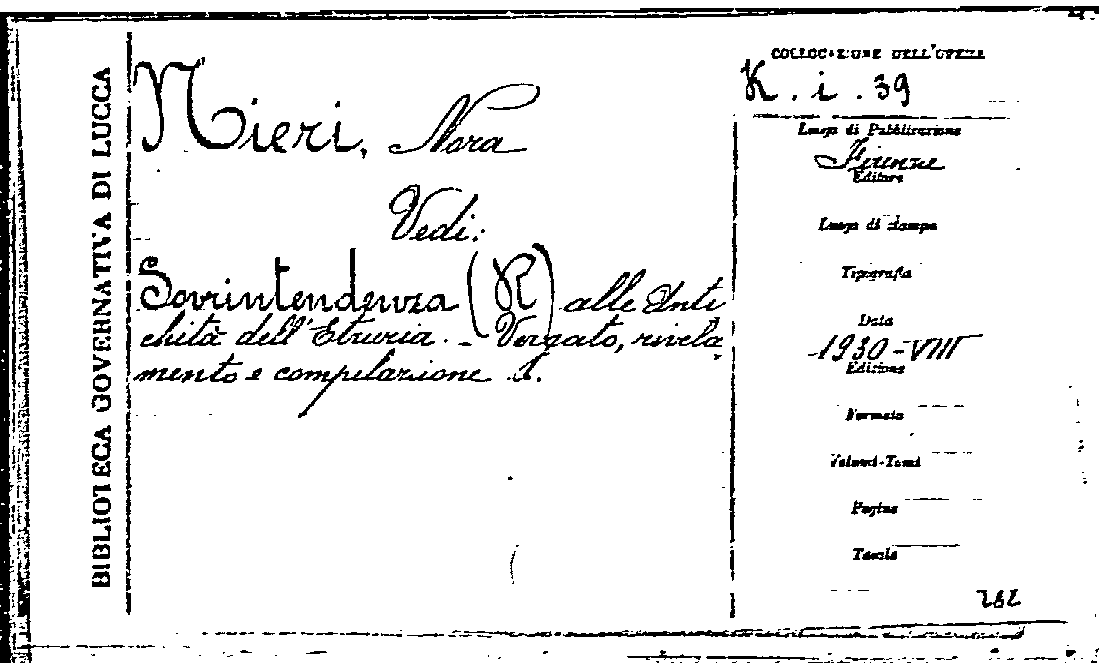 BIBLIOTECA GOVERNATIVA DI LUCCA
Nieri, Nora
Vedi:
Sovrintendenza (R) alle Anti
chità dell'Etruria. - Vergato, rivela
mento e compilazione d.
COLLOCAZIONE DELL'OPERA
K. i. 39
Luogo di Pubblicazione
Firenze
Editore
Luogo di stampa
Tipografia
Data
1930-VIII
Edizione
Formato
Volumi-Tomi
Pagine
Tavole
262